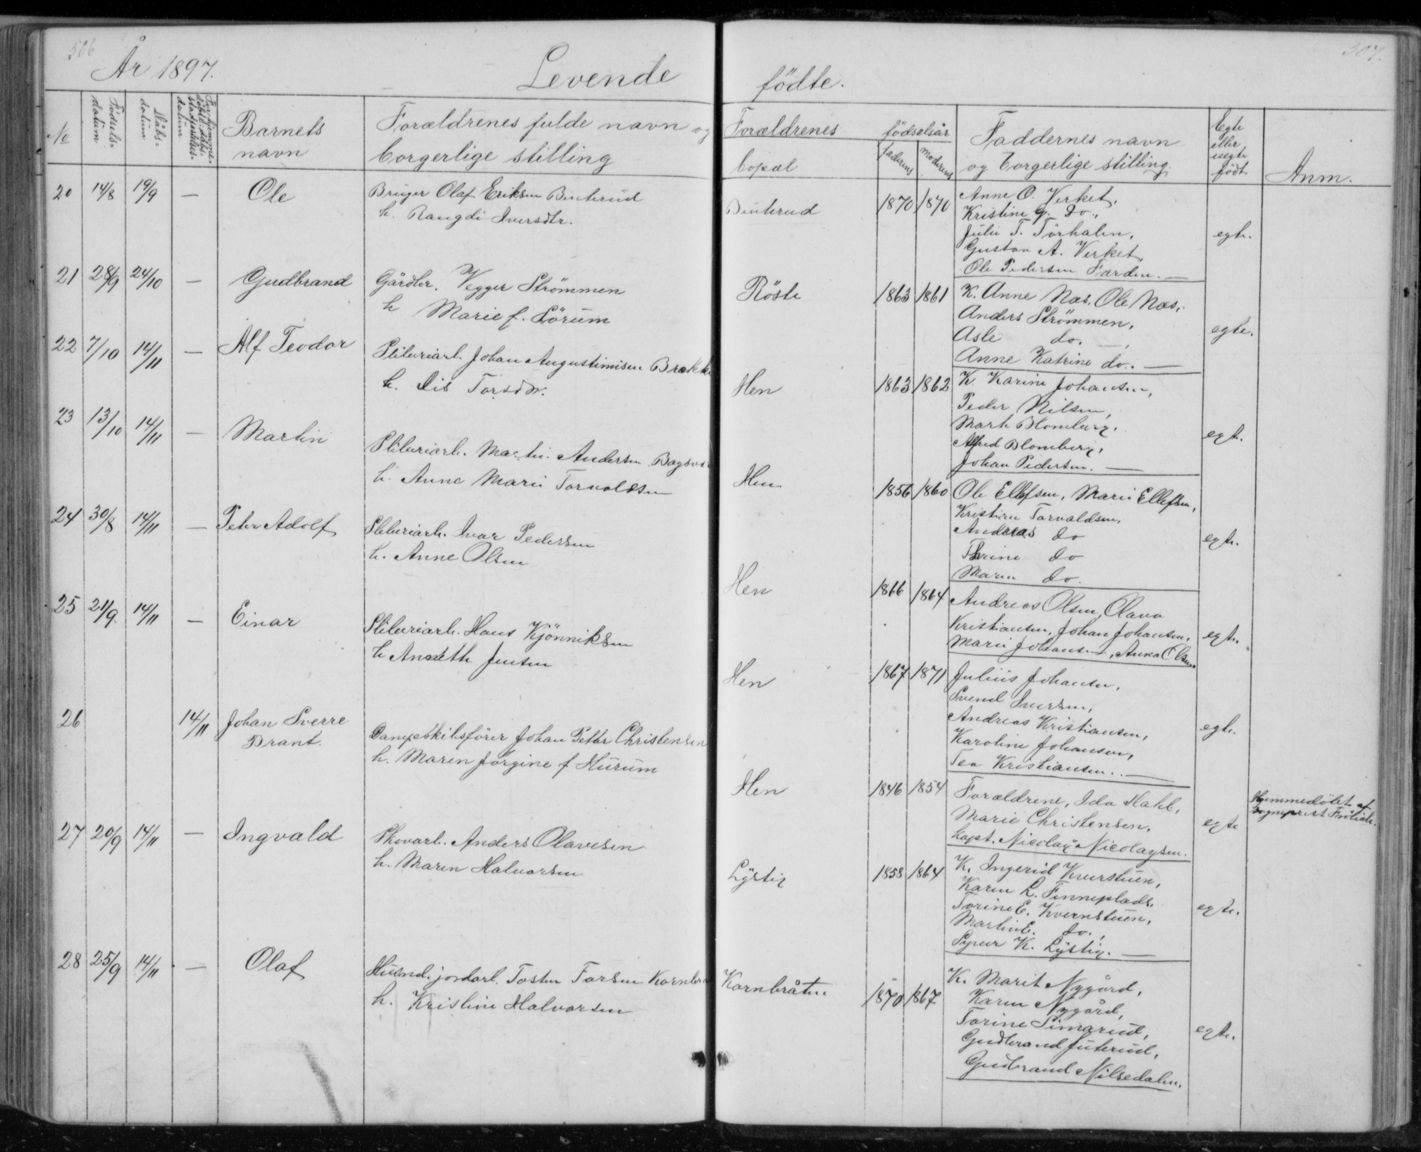 506
507.
År 1897.
Levende fødte.
No
Fødsels-
datum
Dåbs-
datum
Barnets
navn
Forældrenes fulde navn og
borgerlige stilling
Forældrenes
bopæl
fødselsår
faderens
moderens
Faddernes navn
og borgerlige stilling
Egte
eller
uegte
født
Anm.
20 14/8 19/9 — Ole
Bruger Olaf Eriksen Binterud
h. Rangdi Iversdtr.
Binterud 1870 1870
Anne O. Virket,
Kristine G. do.,
Julie T. Tørhalen,
Gustav A. Virket,
Ole Pedersen Færden. —
egte.
21 28/9 24/10 — Gudbrand
Gårdbr. Vegger Strømmen
h. Marie f. Sørum
Røste 1863 1861
K. Anne Næs, Ole Næs,
Anders Strømmen,
Asle do. —,
Anne Katrine do.. —
egte.
22 7/10 14/11 — Alf Teodor
Sliberiarb. Johan Augustinisen Brække
h. Lis Torsdtr.
Hen 1863 1862
K. Karine Johansen,
Peder Nilsen,
Marth Blomberg,
Alfred Blomberg,
Johan Pedersen. —
egte.
23 13/10 14/11 — Martin
Sliberiarb. Martin Andersen
h. Anne Marie Torvaldsen
Hen 1856 1860
Ole Ellefsen, Marie Ellefsen,
Kristine Torvaldsen,
Andreas do
Thrine do
Maren do.
egte.
24 30/8 14/11 — Peter Adolf
Sliberiarb. Ivar Pedersen
h. Anne Olsen
Hen 1866 1864
Andreas Olsen, Olava
Kristiansen, Johan Johansen,
Marie Johansen, Anna Olsen
egte.
25 21/9 14/11 — Einar
Sliberiarb. Hans Kjønniksen
h. Aneth Jensen
Hen 1867 1871
Julius Johansen,
Svend Iversen,
Andreas Kristiansen,
Karoline Johansen,
Tea Kristiansen.. —
egte.
26 14/11 Johan Sverre
Brant.
Dampskibsfører Johan Petter Christensen
h. Maren Jørgine f. Hurum
Hen 1846 1854
Forældrene, Ida Hahl,
Marie Christensen,
Kapt. Nicolay Nicolaysen.
egte
Hjemmedøbt af
27 20/9 14/11 — Ingvald
Skovarb. Anders Olavesen
h. Maren Halvorsen
Lystig 1858 1864
K. Ingerid Kvernstuen,
Karen L. Finneplads.
Torine E. Kvernstuen,
Martin E. do.,
Syver K. Lystig. —
egte.
28 25/9 14/11 — Olaf
Husmd. jordarb. Tosten Torsen Kornbråten
h. Kristine Halvorsen
Kornbråten 1870 1867
K. Marit Nygård,
Karen Nygård,
Torine Simarud,
Gudbrand Juterud,
Gudbrand Nilsedalen.
egte.